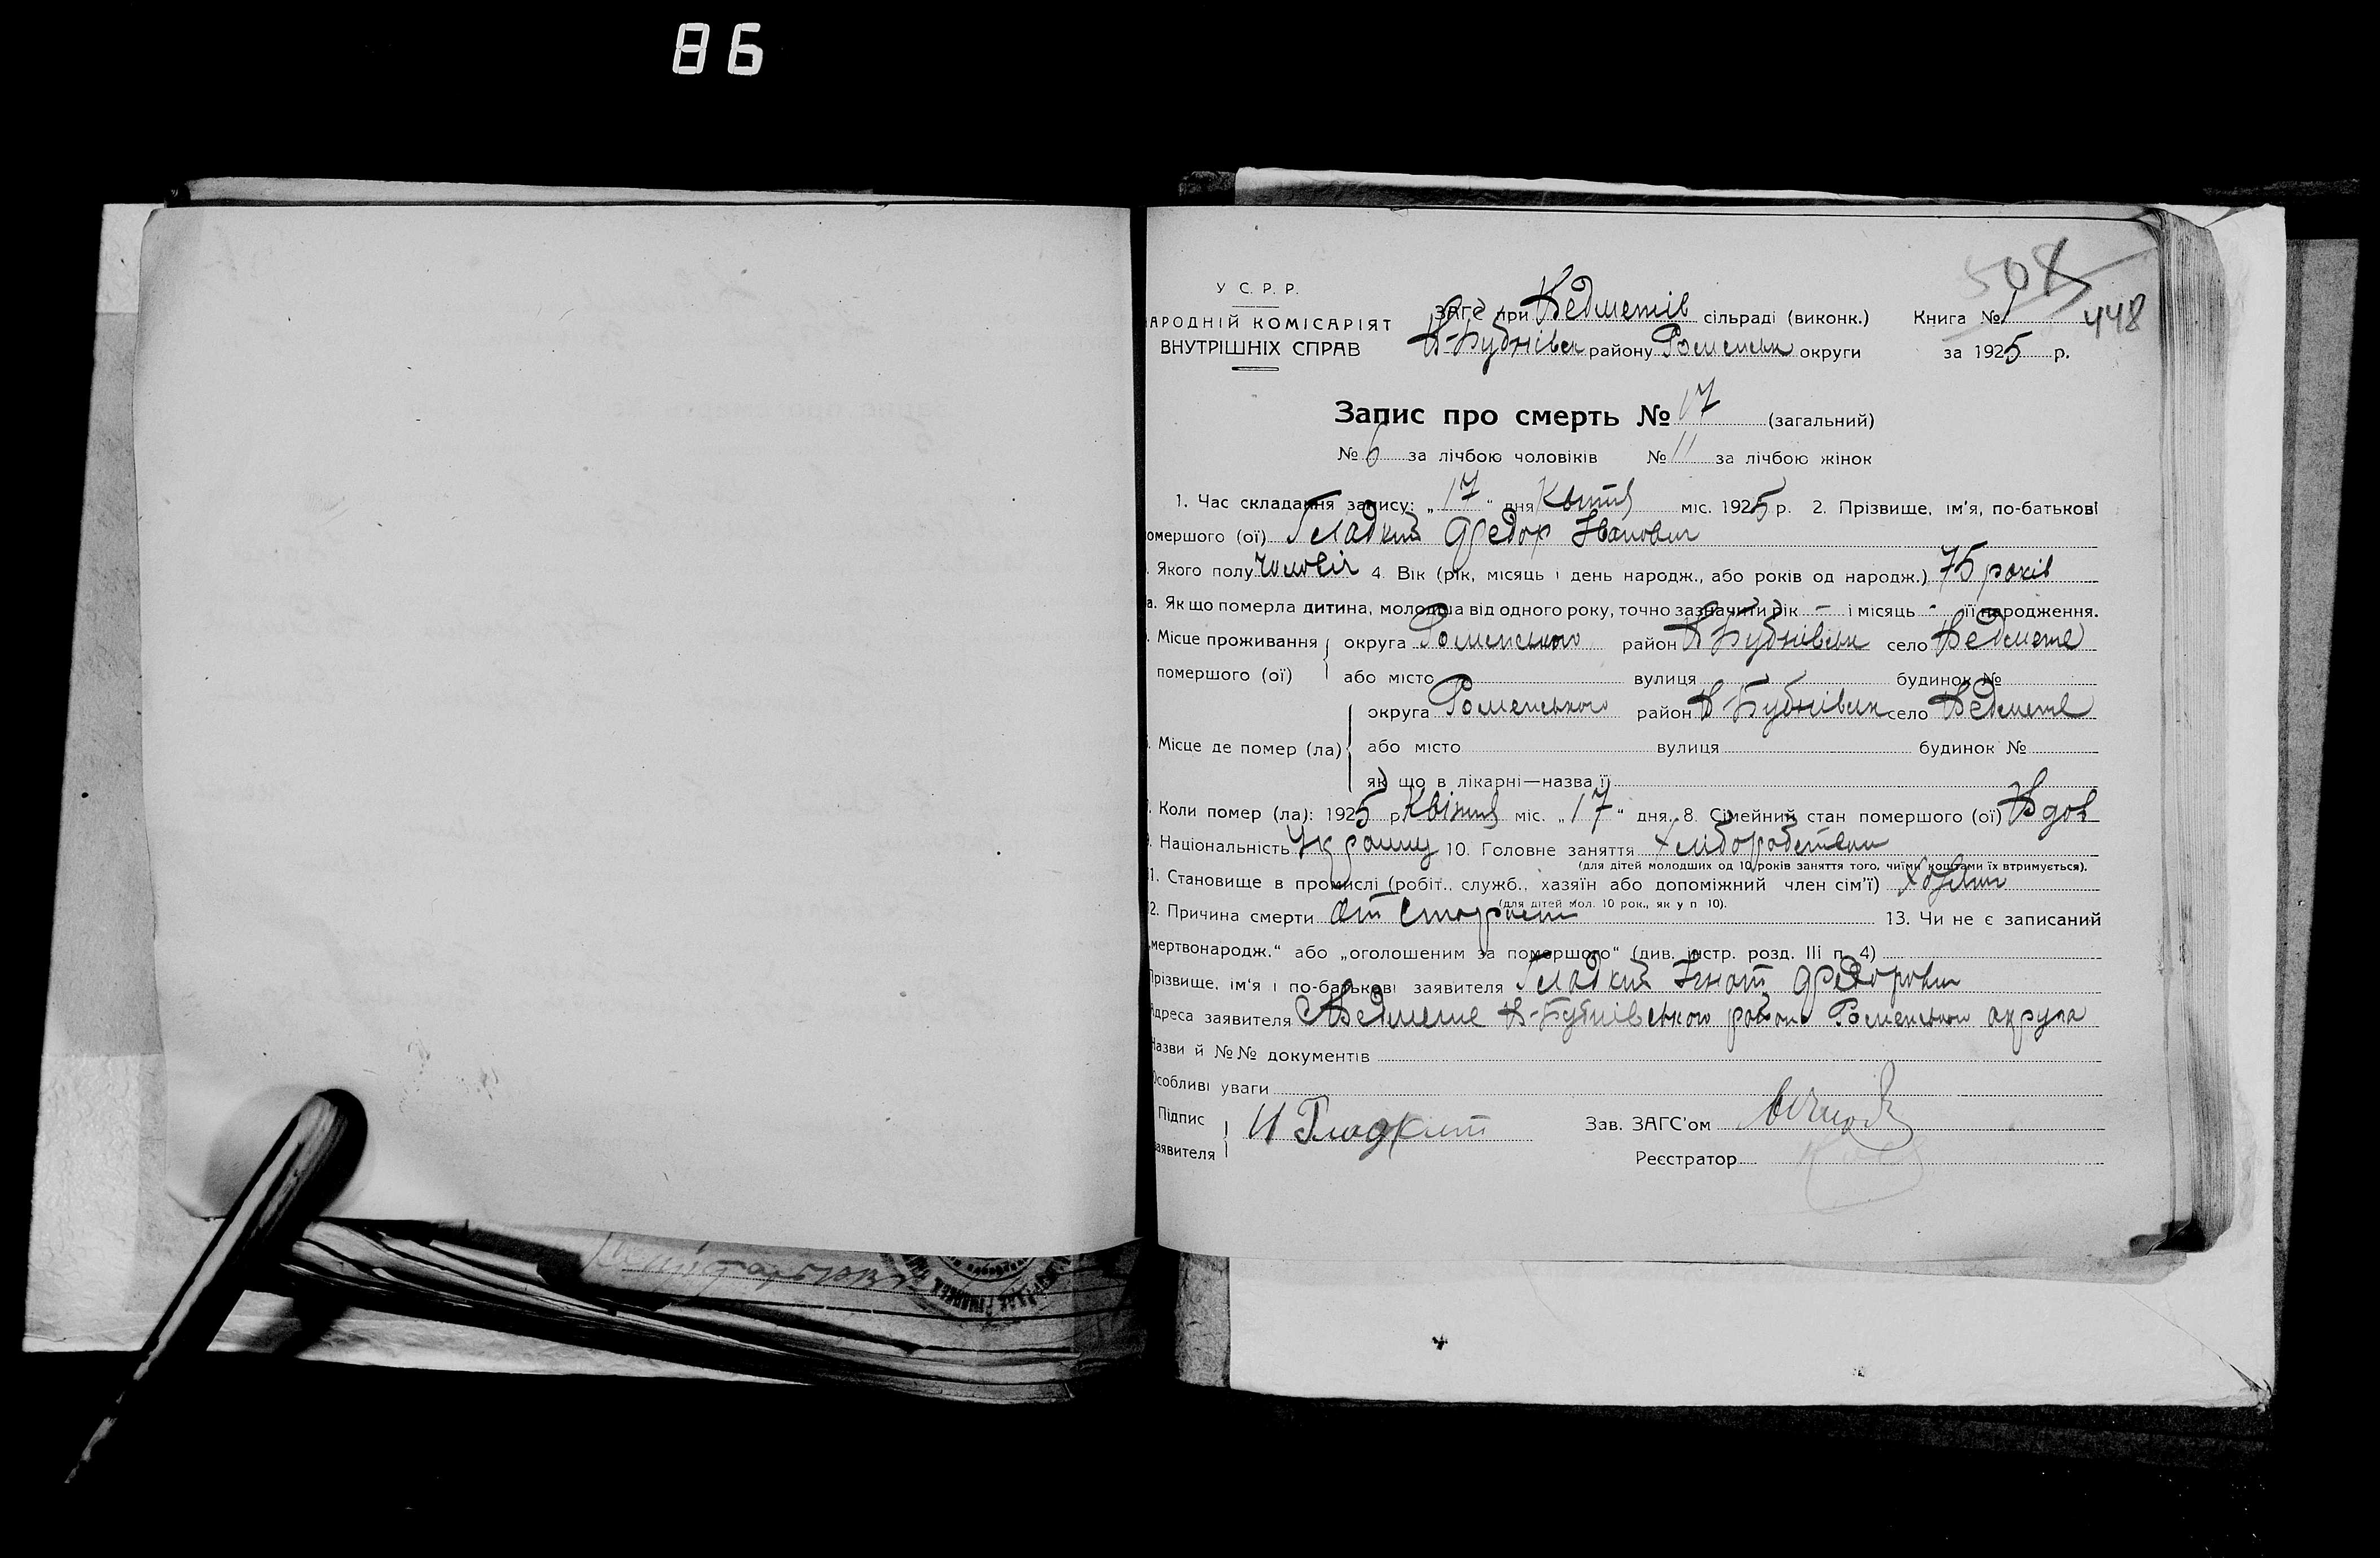 86
508
448
У С. Р. Р.
АРОДНІЙ КОМІСАРІЯТ
ВНУТРІШНІХ СПРАВ
ЗАГС при Ведметів сільраді (виконк.) Книга № 1
В-Бубнівськ району Роменськ округи за 1925 р.
Запис про смерть № 17 (загальний)
№ 6 за лічбою чоловіків № 11 за лічбою жінок
1. Час складання запису: „17“ дня Квітня міс. 1925 р. 2. Прізвище, ім'я, по-батькові
омершого (ої) Гладкий Федор Іванович
. Якого полу чоловіч 4. Вік (рік, місяць і день народж., або років од народж.) 75 років
а. Як що померла дитина, молодша від одного року, точно зазначити рік – і місяць - її народження.
. Місце проживання округа Роменського район В Бубнівськ село Ведмеже
помершого (ої) або місто вулиця будинок №
округа Роменського район В Бубнівськ село Ведмеже
. Місце де помер (ла) або місто вулиця будинок №
як що в лікарні—назва її
. Коли помер (ла): 1925 р Квітня міс. „17“ дня. 8. Сімейний стан помершого (ої) Вдов
. Національність 10. Головне заняття
(для дітей молодших од 10 років заняття того, чиїми коштами їх втримується).
1. Становище в промислі (робіт., служб., хазяїн або допоміжний член сім'ї) Хазяін
(для дітей мол. 10 рок., як у п 10).
2. Причина смерти От старости 13. Чи не є записаний
мертвонародж.“ або „оголошеним за помершого“ (див. інстр. розд. III п. 4)
Прізвище, ім'я і по-батькові заявителя Гладкий Ігнат Федорович
Адреса заявителя Ведмеже В-Бубнівського района Роменського округа
Назви й №№ документів
Особливі уваги
Підпис
заявителя И Гладкий Зав. ЗАГС'ом
Реєстратор